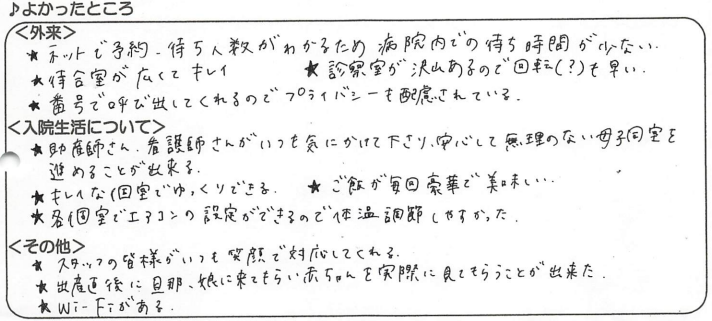 ♪よかったところ
＜外来＞
★ ネットで予約、待ち人数がわかるため 病院内での待ち時間が少ない。
★ 待合室が広くてキレイ ★ 診察室が沢山あるので回転(?)も早い。
★ 番号で呼び出してくれるのでプライバシーも配慮されている。
＜入院生活について＞
★ 助産師さん、看護師さんがいつも気にかけて下さり、安心して無理のない母子同室を
進めることが出来る。
★ キレイな個室でゆっくりできる。 ★ ご飯が毎回豪華で美味しい…
★ 各個室でエアコンの設定ができるので体温調節しやすかった。
＜その他＞
★ スタッフの皆様がいつも笑顔で対応してくれる。
★ 出産直後に旦那、娘に来てもらい赤ちゃんを実際に見てもらうことが出来た。
★ Wi-Fiがある。